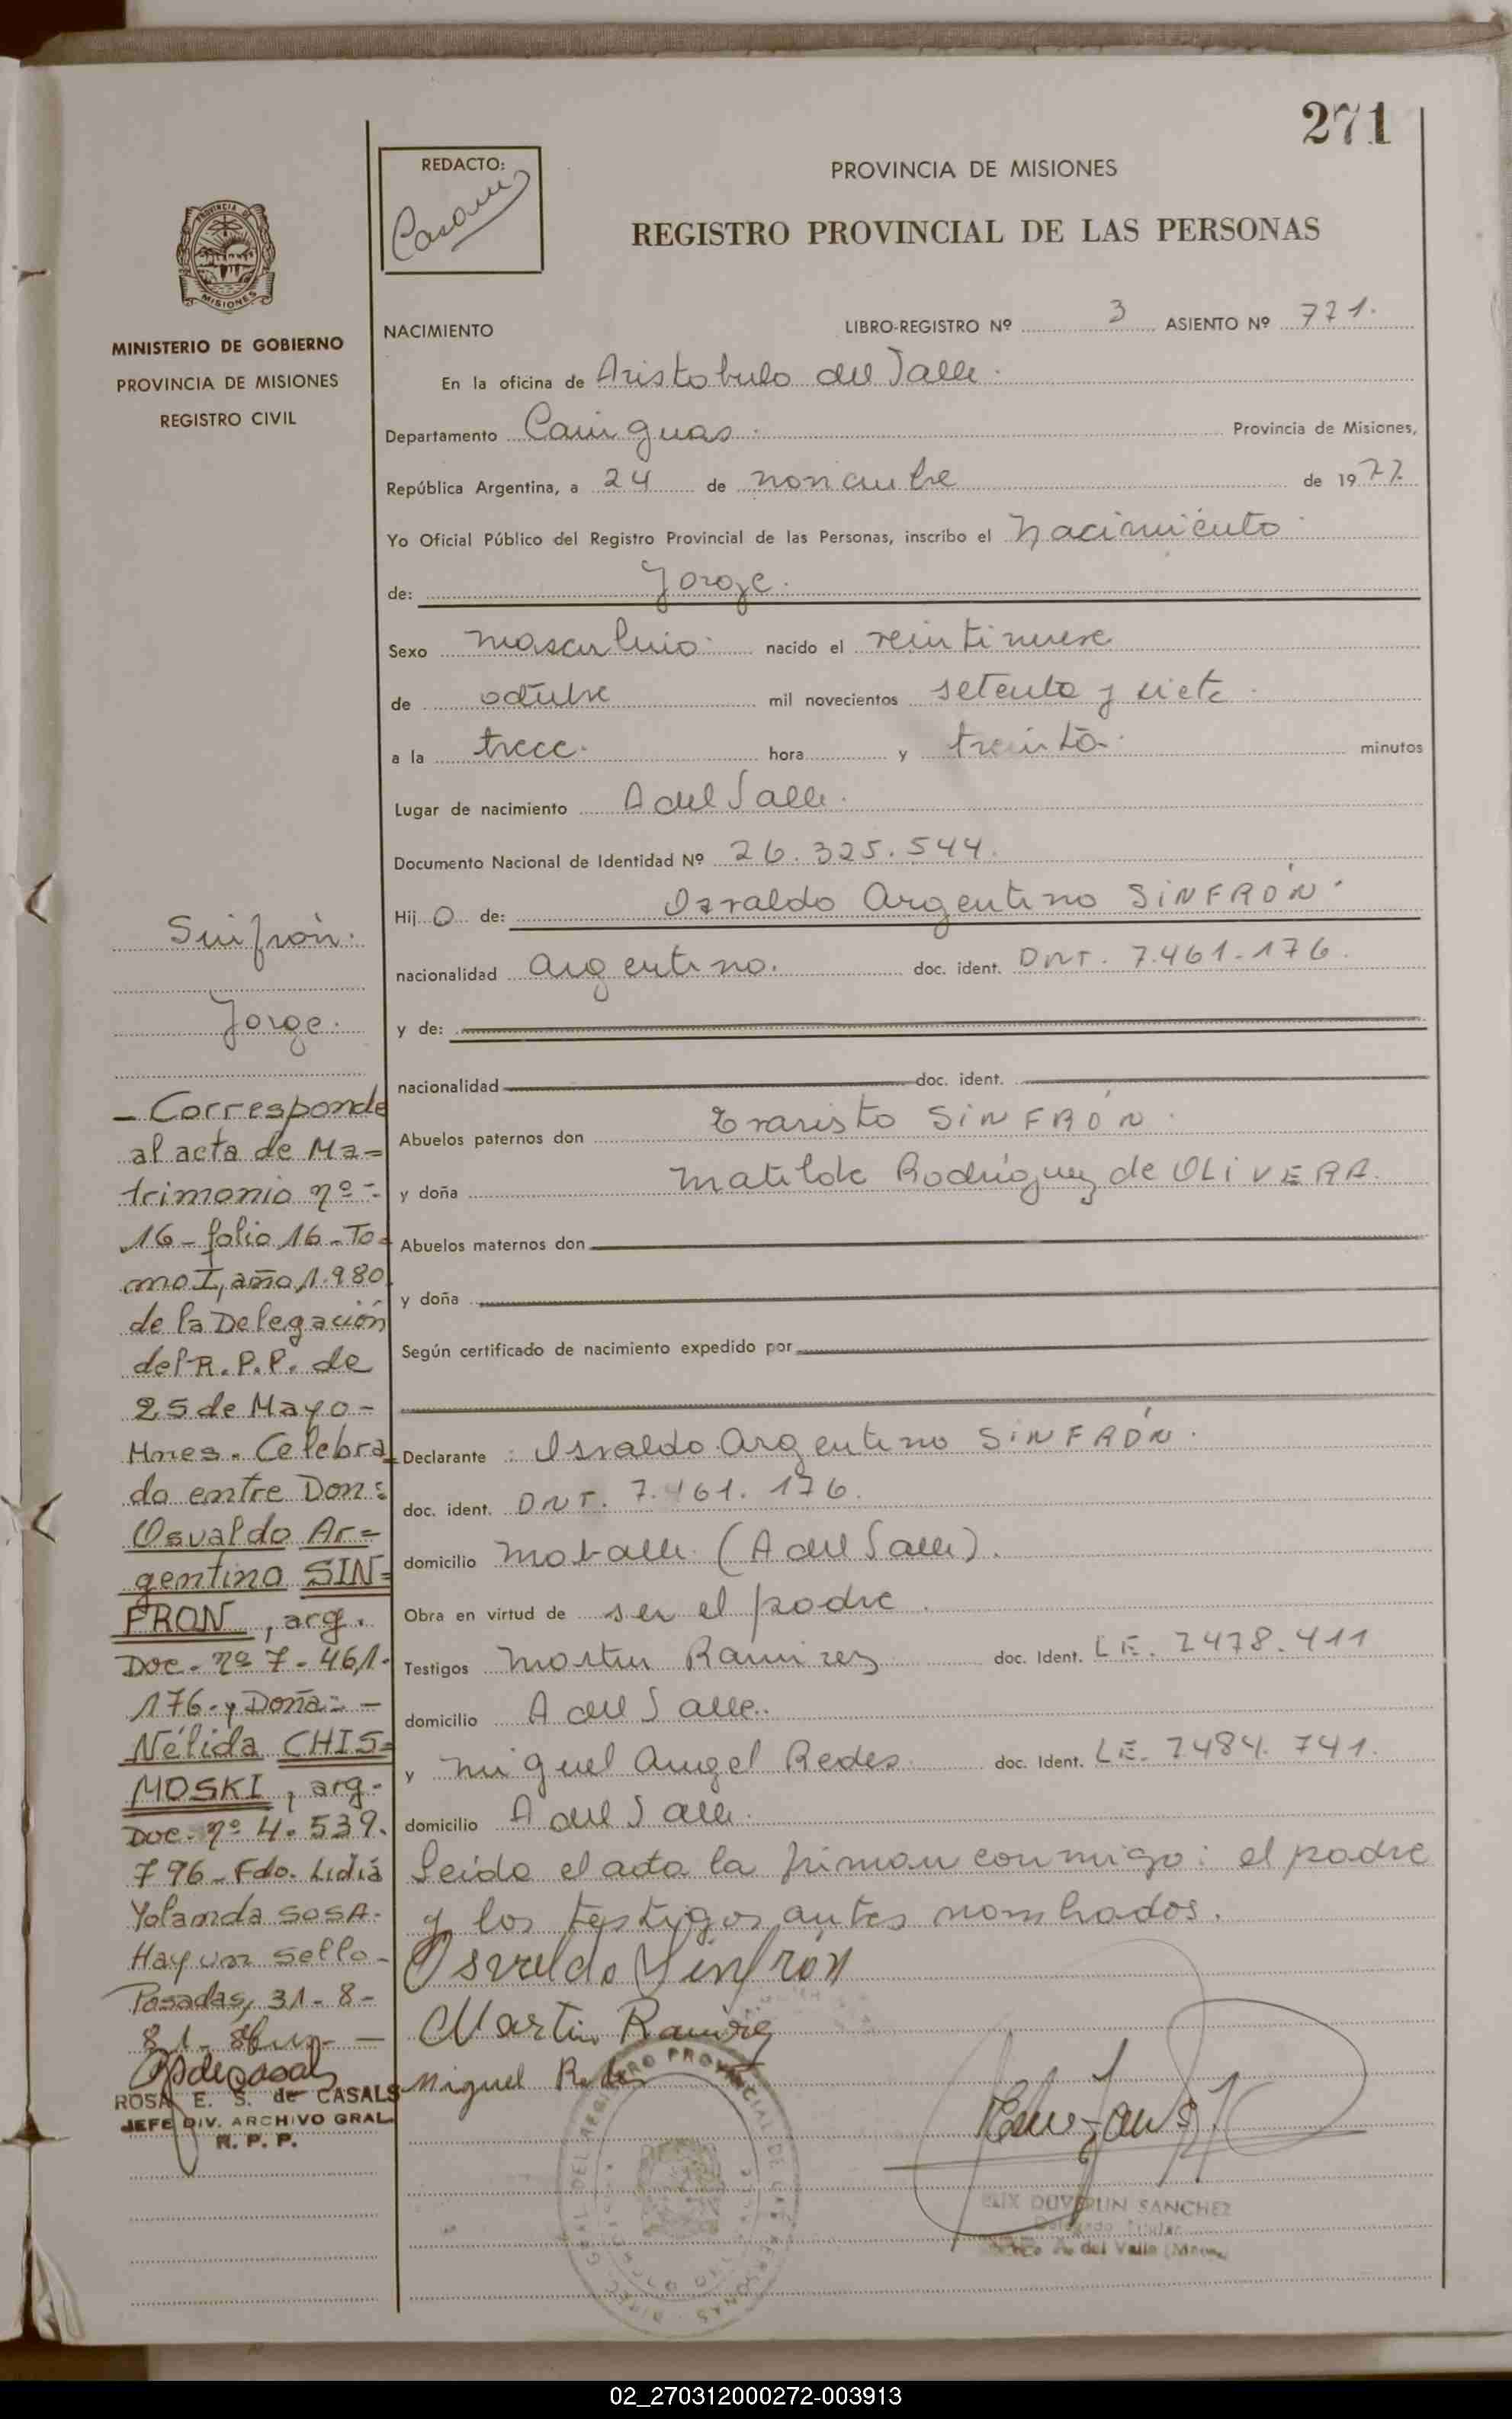 271
REDACTO:
PROVINCIA DE MISIONES
REGISTRO PROVINCIAL DE LAS PERSONAS
PROVINCIA DE
MISIONES
MINISTERIO DE GOBIERNO
PROVINCIA DE MISIONES
REGISTRO CIVIL
NACIMIENTO
LIBRO-REGISTRO Nº 3 ASIENTO Nº 771.
En la oficina de Aristobulo del Valle.
Departamento Cainguas. Provincia de Misiones,
República Argentina, a 24 de noviembre de 1977
Yo Oficial Público del Registro Provincial de las Personas, inscribo el Nacimiento
de: Jorge.
Sexo masculino nacido el veintinueve
de octubre mil novecientos setenta y siete.
a la trece. hora y treinta. minutos
Lugar de nacimiento A del Valle.
Documento Nacional de Identidad Nº 26.325.544.
Hij o de: Osvaldo Argentino SINFRÓN.
nacionalidad argentino. doc. ident. DNI. 7.461.176.
y de:
nacionalidad doc. ident.
Abuelos paternos don Evaristo SINFRÓN.
y doña Matilde Rodríguez de OLIVERA.
Abuelos maternos don
y doña
Según certificado de nacimiento expedido por
Declarante : Osvaldo Argentino SINFRÓN.
doc. ident. DNI. 7.461.176.
domicilio (A del Valle).
Obra en virtud de ser el padre.
Testigos Martin Ramirez doc. Ident. LE. 7478.411
domicilio A del Valle.
y Miguel Angel Redes doc. Ident. LE. 7484.741.
domicilio A del Valle.
Leida el acta la firman conmigo: el padre
y los testigos antes nombrados.
Osvaldo Sinfrón
Martin Ramirez
Miguel Redes
Sinfrón.
Jorge.
- Corresponde
al acta de Ma=
trimonio nº=
16 - folio 16 - To=
mo I, año 1.980
de la Delegación
del R.P.P. de
25 de Mayo -
Mnes. Celebra
do entre Don:
Osvaldo Ar=
gentino SIN=
FRON, arg.
Doc. nº 7.461.
176 - y Doña: -
Nélida CHIS=
MOSKI, arg.
Doc. nº 4.539.
796 - Fdo. Lidia
Yolanda SOSA.
Hay un sello -
Posadas, 31-8-
81-
ROSA E. S. de CASALS
JEFE DIV. ARCHIVO GRAL
R. P. P.
DUVERLIN SANCHEZ
Delegado Titular
A. del Valle
02_270312000272-003913